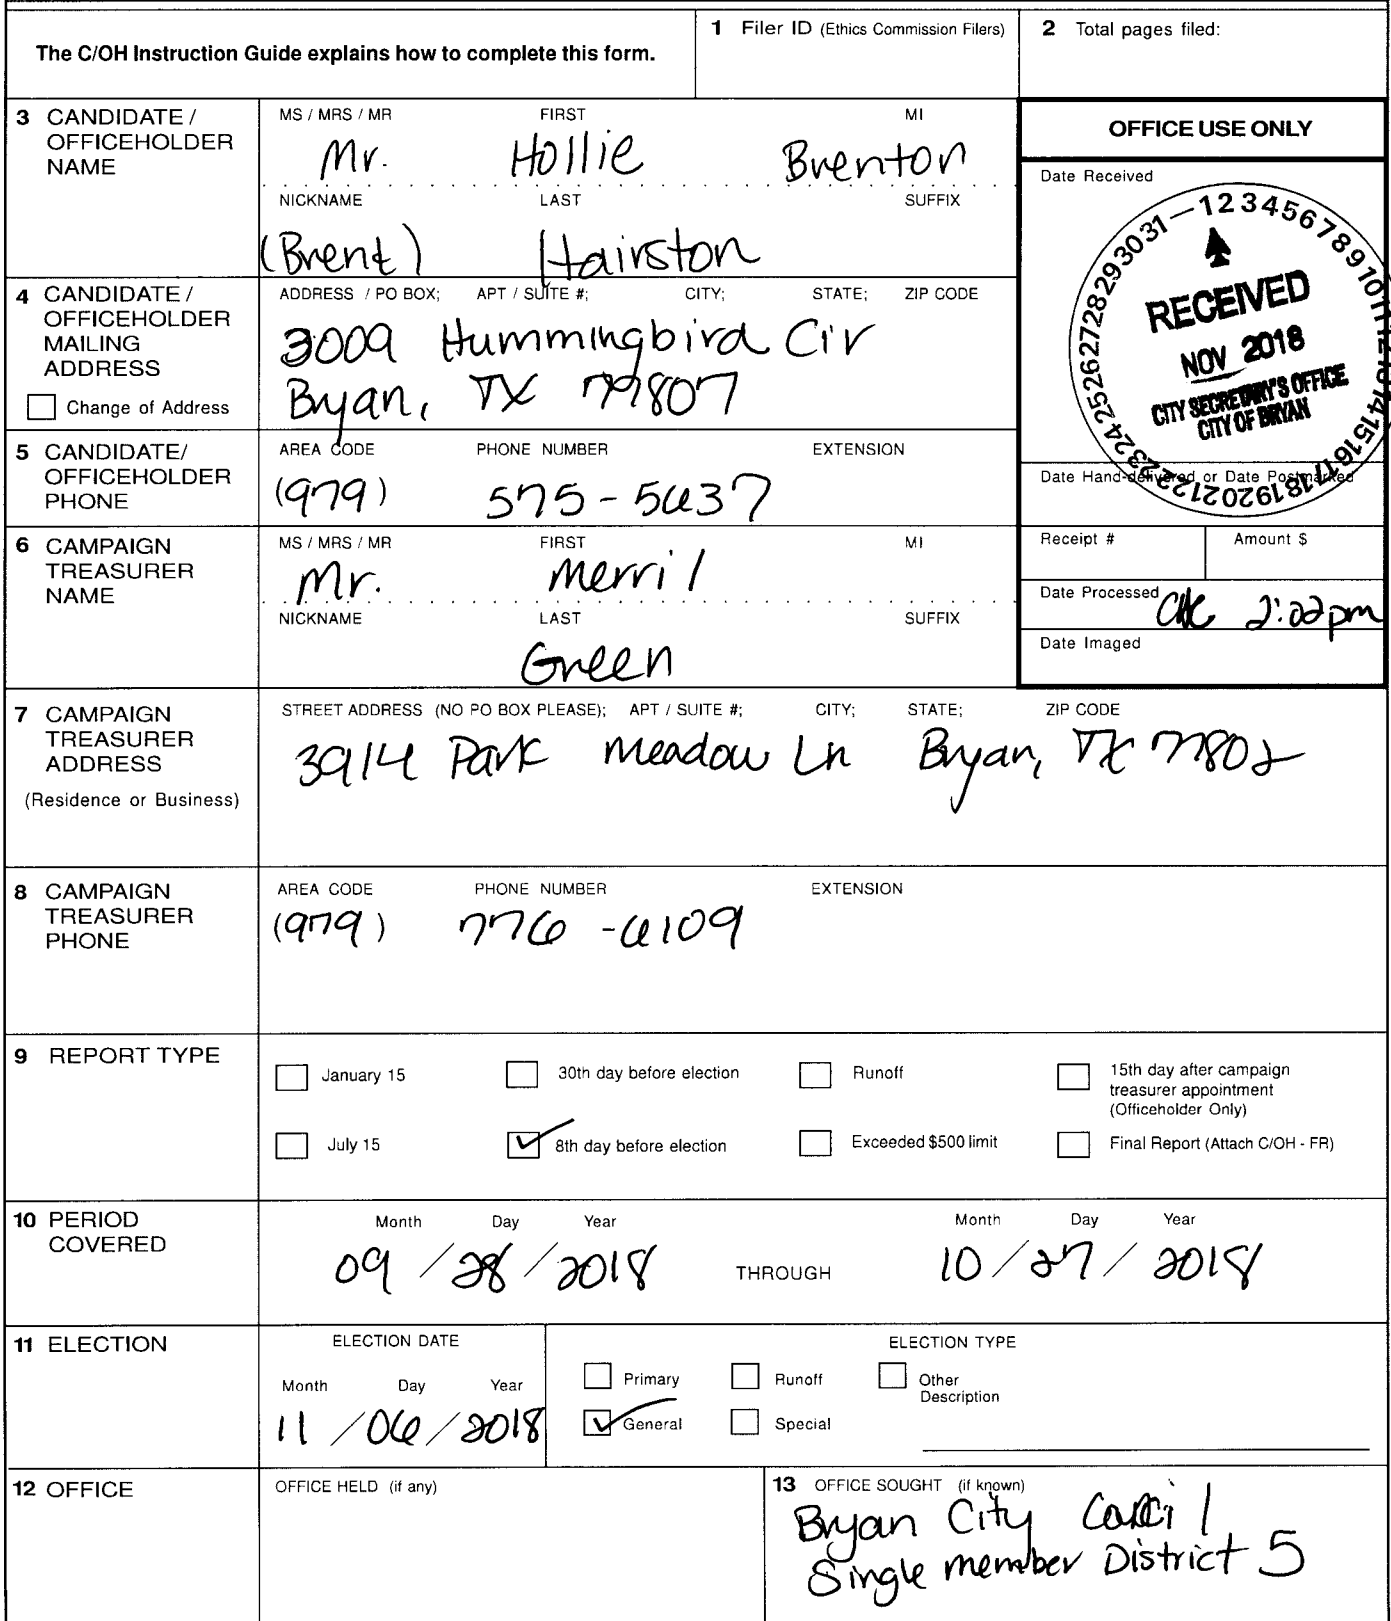 The C/OH Instruction Guide explains how to complete this form.
1 Filer ID (Ethics Commission Filers)
2 Total pages filed:
3 CANDIDATE / OFFICEHOLDER NAME
MS / MRS / MR FIRST MI
Mr. Hollie Brenton
NICKNAME LAST SUFFIX
(Brent) Hairston
OFFICE USE ONLY
Date Received
1 2 3 4 5 6 7 8 9 10 11 12 13 14 15 16 17 18 19 20 21 22 23 24 25 26 27 28 29 30 31
RECEIVED
NOV 2018
CITY SECRETARY'S OFFICE
CITY OF BRYAN
Date Hand-delivered or Date Postmarked
Receipt # Amount $
Date Processed 2:02pm
Date Imaged
4 CANDIDATE / OFFICEHOLDER MAILING ADDRESS
Change of Address
ADDRESS / PO BOX; APT / SUITE #; CITY; STATE; ZIP CODE
3009 Hummingbird Cir
Bryan, TX 77807
5 CANDIDATE/ OFFICEHOLDER PHONE
AREA CODE PHONE NUMBER EXTENSION
(979) 575-5637
6 CAMPAIGN TREASURER NAME
MS / MRS / MR FIRST MI
Mr. Merril
NICKNAME LAST SUFFIX
Green
7 CAMPAIGN TREASURER ADDRESS
(Residence or Business)
STREET ADDRESS (NO PO BOX PLEASE); APT / SUITE #; CITY; STATE; ZIP CODE
3914 Park Meadow Ln Bryan, TX 77802
8 CAMPAIGN TREASURER PHONE
AREA CODE PHONE NUMBER EXTENSION
(979) 776-6109
9 REPORT TYPE
January 15
30th day before election
Runoff
15th day after campaign treasurer appointment (Officeholder Only)
July 15
8th day before election
Exceeded $500 limit
Final Report (Attach C/OH - FR)
10 PERIOD COVERED
Month Day Year Month Day Year
09 / 28 / 2018 THROUGH 10 / 27 / 2018
11 ELECTION
ELECTION DATE
Month Day Year
11 / 06 / 2018
ELECTION TYPE
Primary Runoff Other Description
General Special
12 OFFICE
OFFICE HELD (if any)
13 OFFICE SOUGHT (if known)
Bryan City
Single member District 5